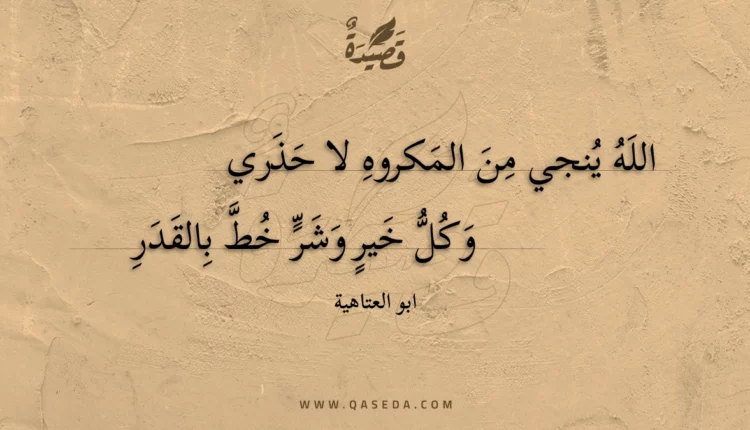 قَصِيدَةٌ
اللَهُ يُنجي مِنَ المَكروهِ لا حَذَري
وَكُلُّ خَيرٍ وَشَرٍّ خُطَّ بِالقَدَرِ
ابو العتاهية
WWW.QASEDA.COM